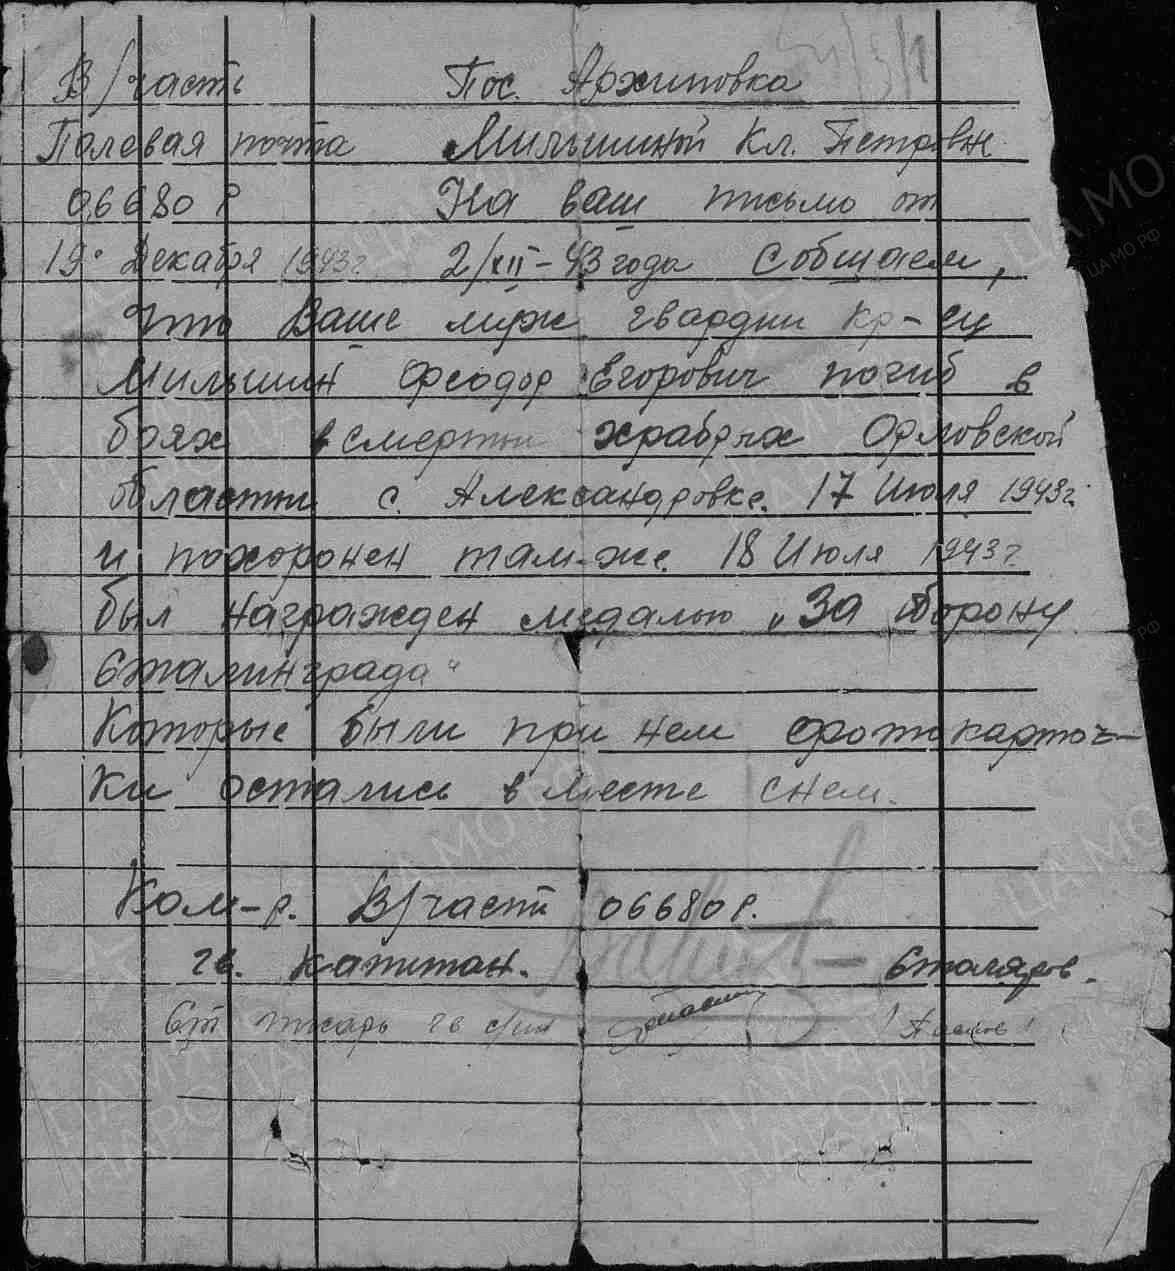 В/часть Пос. Архиповка
Полевая почта Мильшиной Кл. Петровн.
06680 Р На ваш письмо от
19. Декабря 1943 г. 2/XII-43 года Собщаем,
что Ваше муж гвардии кр-ец
Мильшин Феодор Егорович погиб в
боях в смертью храбрых Орловской
области с. Александровке. 17 Июля 1943 г.
и похоронен там-же. 18 Июля 1943 г.
был награжден медалью „За оборону
Сталинграда“
Которые были при нем фотокарточ-
ки остались в месте снем.
Ком-р. В/части 06680 Р.
гв. капитан. — Столяров.
Ст писарь гв с/и